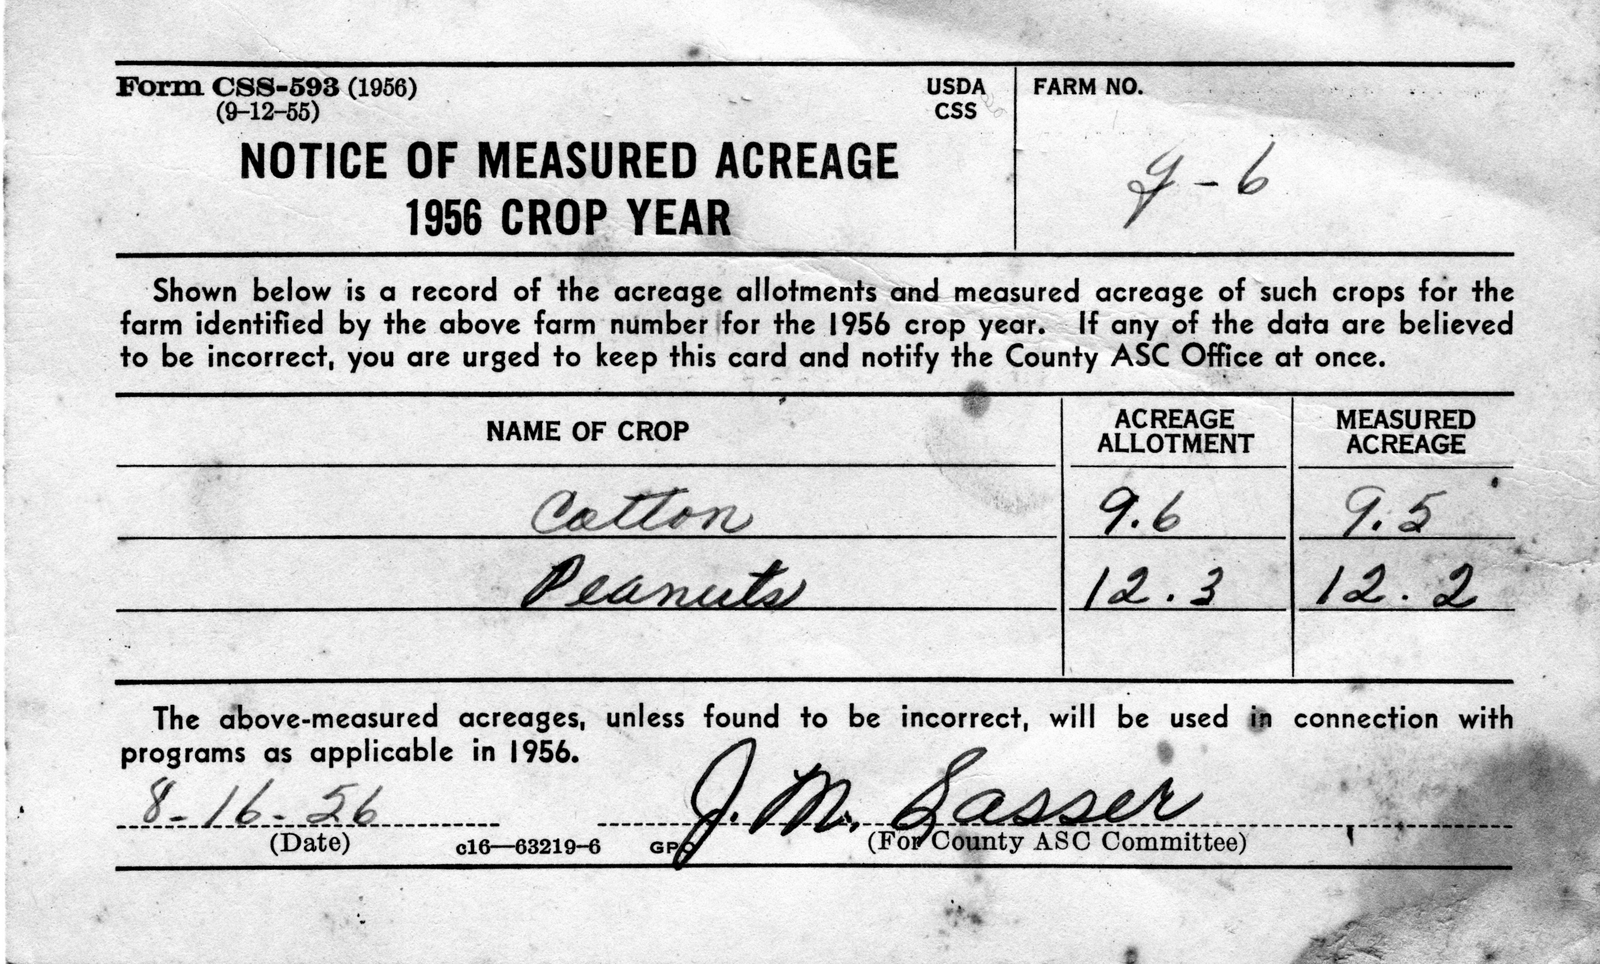 Form CSS-593 (1956)
(9-12-55)
USDA
CSS
FARM NO.
NOTICE OF MEASURED ACREAGE
1956 CROP YEAR
g-6
Shown below is a record of the acreage allotments and measured acreage of such crops for the
farm identified by the above farm number for the 1956 crop year. If any of the data are believed
to be incorrect, you are urged to keep this card and notify the County ASC Office at once.
NAME OF CROP
ACREAGE
ALLOTMENT
MEASURED
ACREAGE
Cotton 9.6 9.5
Peanuts 12.3 12.2
The above-measured acreages, unless found to be incorrect, will be used in connection with
programs as applicable in 1956.
8-16-56 J. M. Sasser
(Date) c16—63219-6 GPO (For County ASC Committee)